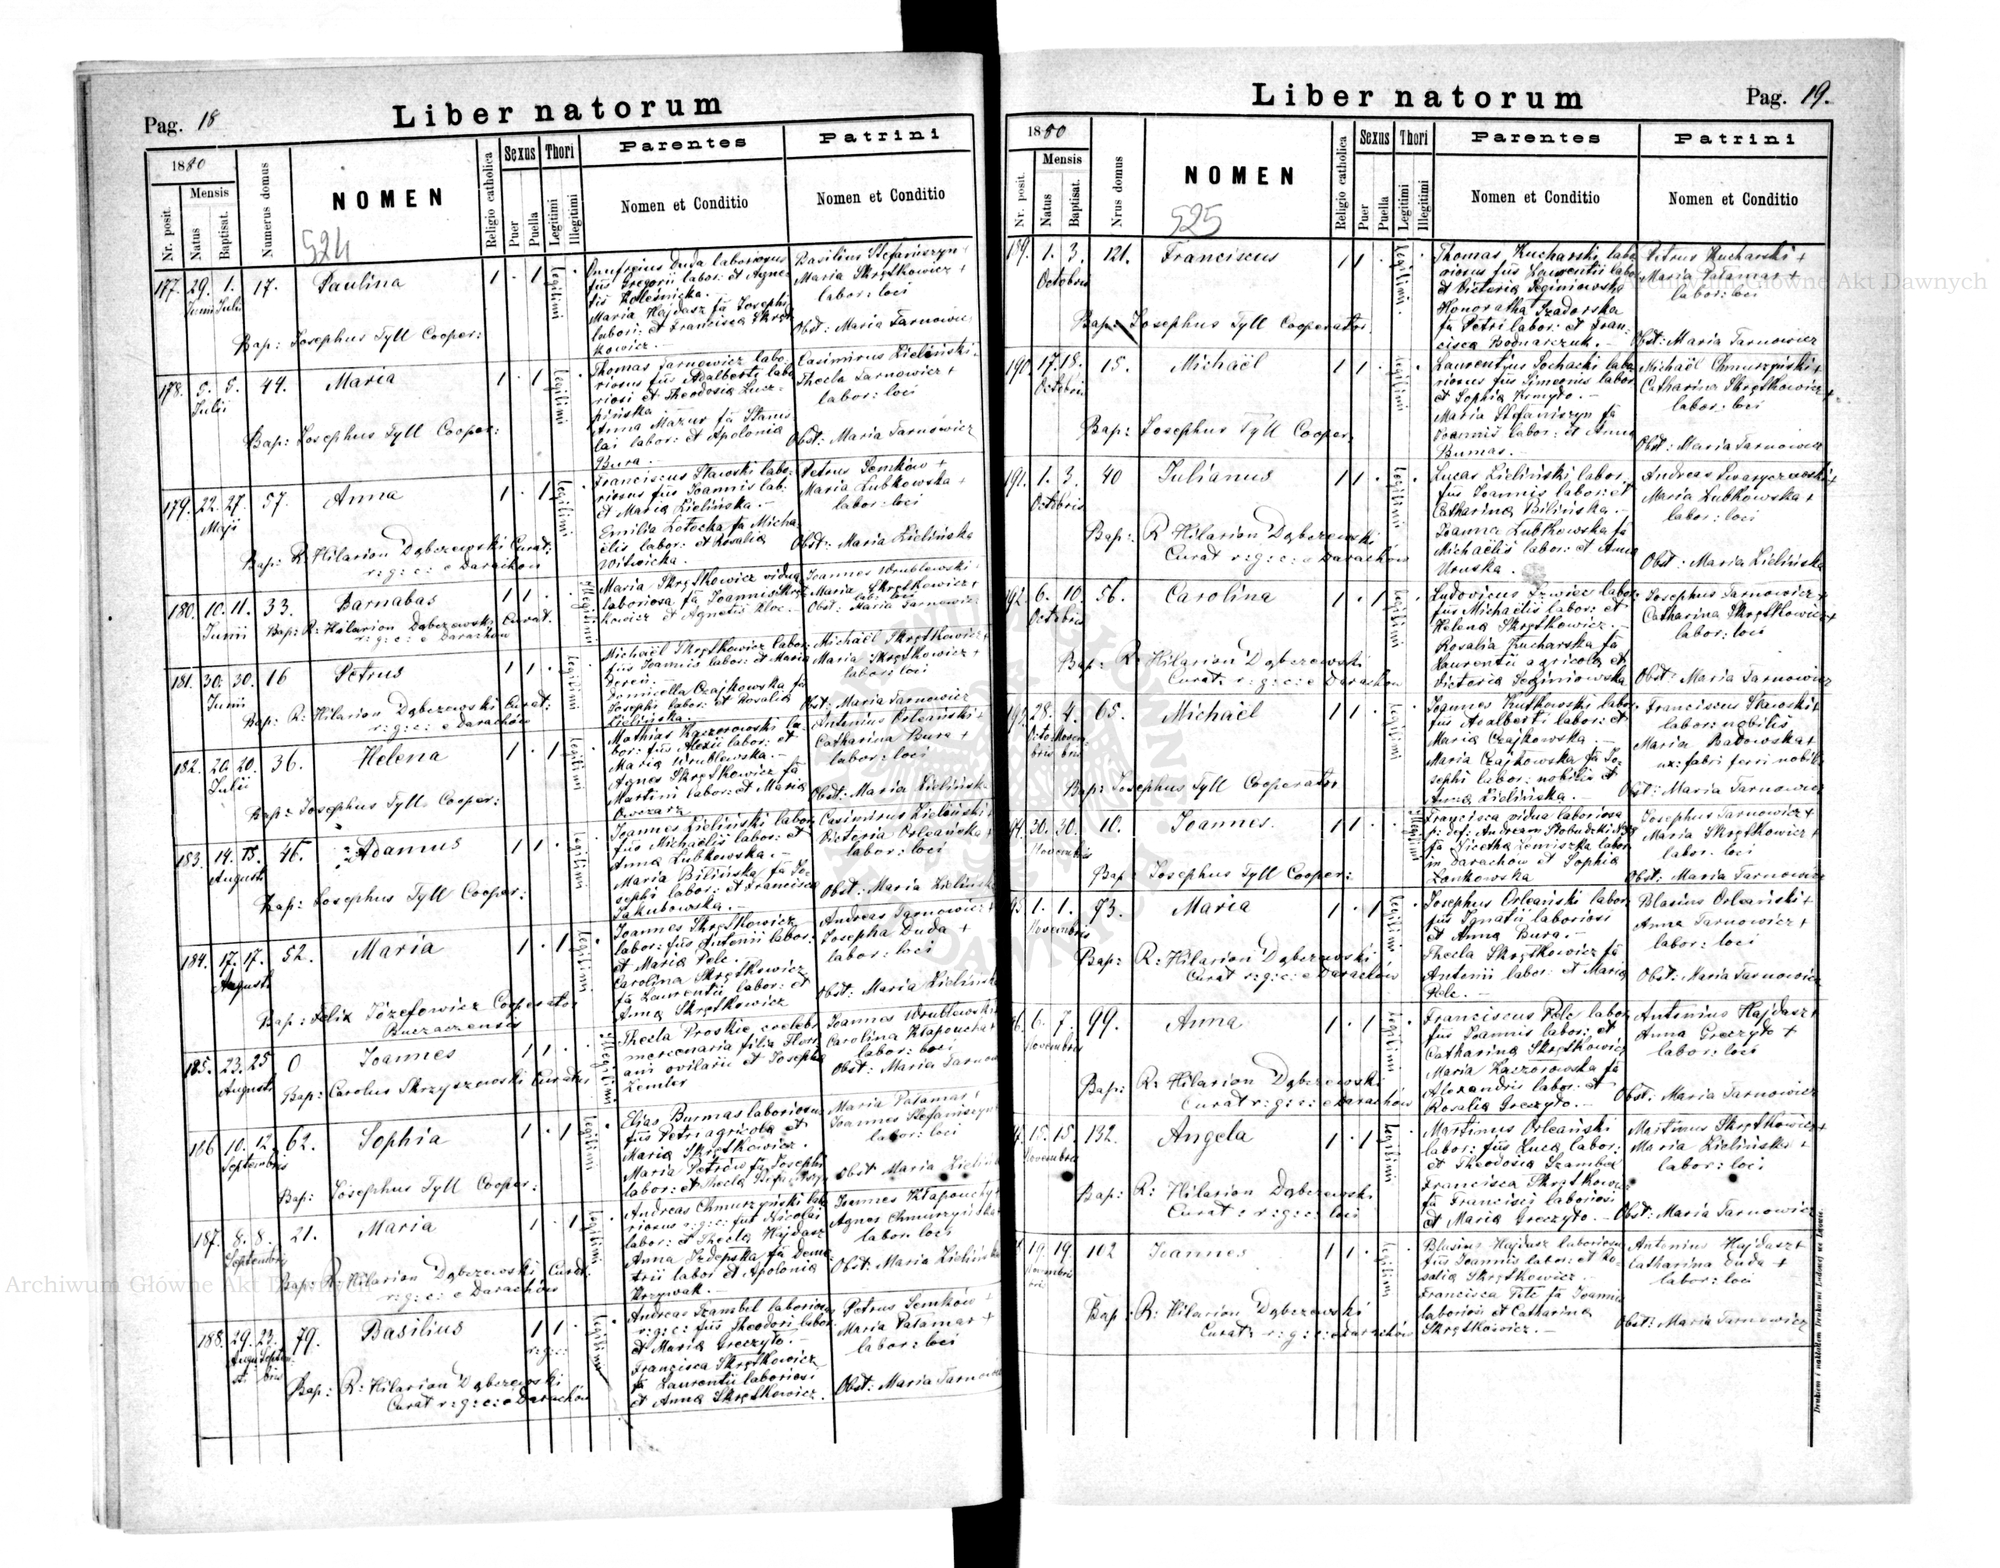 Pag. 18
Liber natorum
1880
Nr. posit.
Mensis
Natus
Baptisat.
Numerus domus
NOMEN
524
Religio catholica
Sexus
Puer
Puella
Thori
Legitimi
Illegitimi
Parentes
Nomen et Conditio
Patrini
Nomen et Conditio
177. 29. 1. 17. Paulina 1 . 1 Legitimi
Junii Julii
Bap: Josephus Tyll Cooper:
Onufrius Duda laboriosus
fius Gregorii labor: et Agne-
Maria Hajdasz fa Josephi
labori: et Francisca Skręt-
kowicz.
Basilius Stefaniszyn +
Maria Skrętkowicz +
labor: loci
Obst: Maria Tarnowicz
178. 5. 5. 44. Maria 1 . 1 Legitimi
Julii
Bap: Josephus Tyll Cooper:
Thomas Tarnowicz labo-
riosus fius Adalberti labo
riosi et Theodosia
Anna Mazur fa Stanis
lai labor: et Apolonia
Bura.
Casimirus Zieliński
Thecla Tarnowicz +
labor: loci
Obst: Maria Tarnowicz
179. 22. 27. 57. Anna 1 . 1 Legitimi
Maji
Bap: R: Hilarion Dąbczewski Curat:
r: g: c: e Darachów
Franciscus Stawski labo-
riosus fius Joannis lab:
et Maria Zielińska.
Emilia Łotocka fa Micha
ëlis labor: et Rosalia
Witwicka.
Petrus Semków +
Maria Lubkowska +
labor: loci
Obst: Maria Zielińska
180. 10. 11. 33. Barnabas 1 1 . Illegitimi
Junii Bap: R: Hilarion Dąbczewski Curat.
r: g: c: e Darachów
Maria Skrętkowicz vidua
laboriosa fa Joannis Skręt
kowicz et Agnetis
Joannes Wrublewski
Maria Skrętkowicz +
lab: loci
Obst: Maria Tarnowicz
181. 30. 30. 16 Petrus 1 1 . Legitimi
Junii
Bap: R: Hilarion Dąbczewski Curat:
r: g: c: e Darachów
Michaël Skrętkowicz labor:
fius Joannis labor: et Maria
Dereń.
Domicella Czajkowska fa
Josephi labor: et Rosalia
Zielińska.
Michaël Skrętkowicz +
Maria Skrętkowicz +
labor: loci
Obst: Maria Tarnowicz
182. 20. 20. 36. Helena 1 . 1 Legitimi
Julii
Bap: Josephus Tyll Cooper:
Mathias Kaczorowski la-
bor: fius Alexii labor: et
Maria Wrublewska.
Agnes Skrętkowicz fa
Martini labor: et Maria
Owczarz
Antonius Orleański +
Catharina Bura +
labor: loci
Obst: Maria Zielińsk
183. 14. 15. 46. Joannus 1 1 . Legitimi
Augusti
Bap: Josephus Tyll Cooper:
Joannes Zieliński labor:
fius Michaëlis labor: et
Anna Lubkowska.
Maria Bilińska fa Jo-
sephi labor: et Francisca
Jakubowska.
Casimirus Zieliński +
Victoria Orleańska +
labor: loci
Obst: Maria Zielińsk
184. 17. 17. 52. Maria 1 . 1 Legitimi
Augusti
Bap: Felix Józefowicz Cooperator
Buczaczensis
Joannes Skrętkowicz
labor: fius Antonii labor:
et Maria Pelc.
Carolina Skrętkowicz
fa Laurentii labor: et
Anna Skrętkowicz
Andreas Tarnowicz +
Josepha Duda +
labor: loci
Obst: Maria Zielińsk
185. 23. 25 0 Joannes 1 1 . Illegitimi
Augusti
Bap: Carolus Skrzyszewski Curatus
Thecla Proskie
mercenaria filia Flori
ani ovilarii et Josepha
Zemler
Joannes Wrublewski
Carolina Kłapoucha +
labor: loci
Obst: Maria Tarnow
186 10. 12. 62. Sophia 1 . 1 Legitimi
Septembris
Bap: Josephus Tyll Cooper:
Elias Burmas laboriosus
fius Petri agricola et
Maria Skrętkowicz.
Maria Petrów fa Josephi
labor: et Thecla
Maria Patamar +
Joannes Stefaniszyn
labor: loci
Obst: Maria Zielińs
187. 8. 8. 21. Maria 1 . 1 Legitimi
Septembris
Bap: R: Hilarion Dąbczewski Curat.
r: g: c: e Darachów
Andreas Chmurzyński labo
riosus r: g: c: fius Nicolai
labor: et Thecla Hajdasz
Anna Izdepska fa Deme
trii labor et Apolonia
Krzywak.
Joannes Kłapouchy +
Agnes Chmurzyńska
labor: loci
Obst: Maria Zielińska
188. 29. 23. 79. Basilius 1 1 . Legitimi
Augu Septem r: g: c:
sti bris
Bap: R: Hilarion Dąbczewski
Curat r: g: c: e Darachów
Andreas Szambel laboriosus
r: g: c: fius Theodori labor:
et Maria Greczyło.
Francisca Skrętkowicz
fa Laurentii laboriosi
et Anna Skrętkowicz.
Petrus Semków +
Maria Patamar +
labor: loci
Obst: Maria Tarnow
Liber natorum
Pag. 19.
1880
Nr. posit.
Mensis
Natus
Baptisat.
Nrus domus
NOMEN
525
Religio catholica
Sexus
Puer
Puella
Thori
Legitimi
Illegitimi
Parentes
Nomen et Conditio
Patrini
Nomen et Conditio
189. 1. 3. 121. Franciscus 1 1 . Legitimi
Octobris
Bap: Josephus Tyll Cooperator
Thomas Kucharski labo
riosus fius Laurentii labor
et Victoria Seginiowska
Honoratha Szadorska
fa Petri labor: et Fran-
cisca Bodnarczuk.
Petrus Kucharski +
Maria Patamar +
labor: loci
Obst: Maria Tarnowicz
190. 17. 18. 15. Michaël 1 1 . Legitimi
Octobris
Bap: Josephus Tyll Cooper:
Laurentius Sochacki labo
riosus fius Simeonis labor:
et Sophia
Maria Stefaniszyn fa
Joannis labor: et Anna
Bumas.
Michaël Chmurzyński +
Catharina Skrętkowicz +
labor: loci
Obst: Maria Tarnowicz
191. 1. 3. 40 Julianus 1 1 . Legitimi
Octobris
Bap: R Hilarion Dąbczewski
Curat r: g: c: e Darachów
Lucas Zieliński labor:
fius Joannis labor: et
Catharina Bilińska.
Joanna Lubkowska fa
Michaëlis labor: et Anna
Uruska.
Andreas Swaryczewski +
Maria Lubkowska +
labor: loci
Obst: Maria Zielińska
192. 6. 10. 56. Carolina 1 . 1 Legitimi
Octobris
Bap: R: Hilarion Dąbczewski
Curat: r: g: c: e Darachów
Ludovicus Szwiec labor:
fius Michaëlis labor: et
Helena Skrętkowicz.
Rosalia Kucharska fa
Laurentii agricola et
Victoria Seginiowska
Josephus Tarnowicz +
Catharina Skrętkowicz +
labor: loci
Obst: Maria Tarnowicz
28. 4. 65. Michaël 1 1 . Legitimi
Octo Novem
bris bris
Bap: Josephus Tyll Cooperator
Joannes Kutkowski labor:
fius Adalberti labor: et
Maria Czajkowska.
Maria Czajkowska fa Jo-
sephi labor: nobilis et
Anna Zielińska.
Franciscus Stawski +
labor: nobilis
Maria Badowska +
ux: fabri ferri nobilis
Obst: Maria Tarnowicz
194. 30. 30. 10. Joannes. 1 1 . Illegitimi
Novembris
Bap: Josephus Tyll Cooper:
Francisca vidua laboriosa
p: def: Andream Stobudzki
fa Nicetha Zemiszka labor:
in Darachów et Sophia
Zankowska
Josephus Tarnowicz +
Maria Skrętkowicz +
labor: loci
Obst: Maria Tarnowicz
95. 1. 1. 73. Maria 1 . 1 Legitimi
Novembris
Bap: R: Hilarion Dąbczewski
Curat r: g: c: e Darachów
Josephus Orleański labor:
fius Ignatii laboriosi
et Anna Bura.
Thecla Skrętkowicz fa
Antonii labor: et Maria
Pelc.
Blasius Orleański +
Anna Tarnowicz +
labor: loci
Obst: Maria Tarnowicz
6. 6. 7. 99. Anna 1 . 1 Legitimi
Novembris
Bap: R: Hilarion Dąbczewski
Curat r: g: c: e Darachów
Franciscus Pelc labor:
fius Joannis labor: et
Catharina Skrętkowicz
Maria Kaczorowska fa
Alexandris labor: et
Rosalia Greczyło.
Antonius Hajdasz +
Anna Greczyło +
labor: loci
Obst: Maria Tarnowicz
15. 15. 132. Angela 1 . 1 Legitimi
Novembris
Bap: R: Hilarion Dąbczewski
Curat: r: g: c: loci
Martinus Orleański
labor: fius Luca labor:
et Theodosia Szambel
Francisca Skrętkowicz
fa Francisci laboriosi
et Maria Greczyło.
Martinus Skrętkowicz +
Maria Zielińska +
labor: loci
Obst: Maria Tarnowicz
19. 19. 102 Joannes 1 1 . Legitimi
Novembris
Bap: R: Hilarion Dąbczewski
Curat: r: g: c: e Darachów
Blasius Hajdasz laboriosus
fius Joannis labor: et Ro-
salia Skrętkowicz.
Francisca Pelc fa Joannis
laboriosi et Catharina
Skrętkowicz.
Antonius Hajdasz +
Catharina Duda +
labor: loci
Obst: Maria Tarnowicz
Drukiem i nakładem Drukarni Ludowej we Lwowie.
Archiwum Główne Akt Dawnych
Archiwum Główne Akt Dawnych